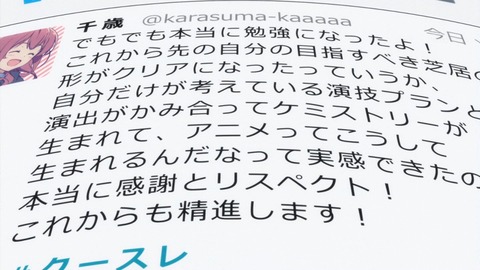 千歳 @karasuma-kaaaaa 今日
でもでも本当に勉強になったよ！
これから先の自分の目指すべき芝居の
形がクリアになったっていうか、
自分だけが考えている演技プランと
演出がかみ合ってケミストリーが
生まれて、アニメってこうして
生まれるんだなって実感できたの
本当に感謝とリスペクト！
これからも精進します！
#クースレ